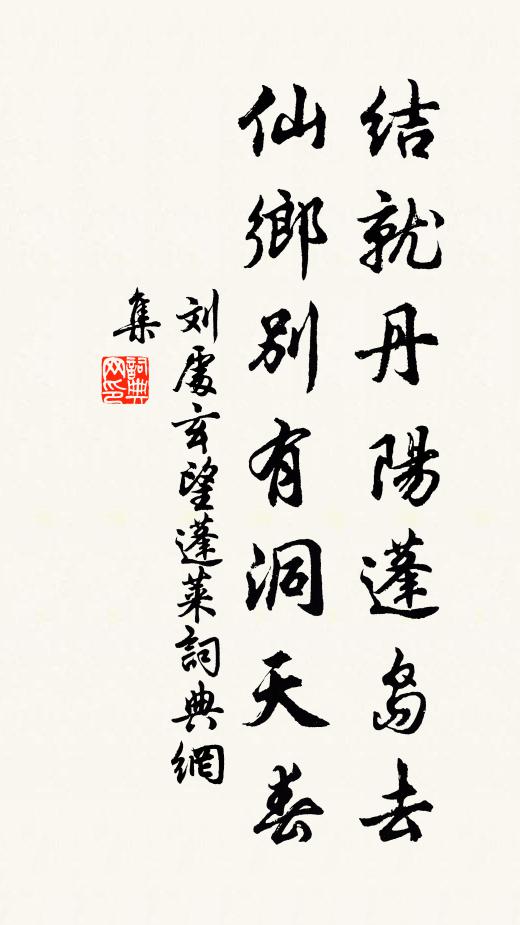 结就丹陽蓬岛去
仙鄉别有洞天春
刘處玄望蓬莱詞典網
集
詞典网印